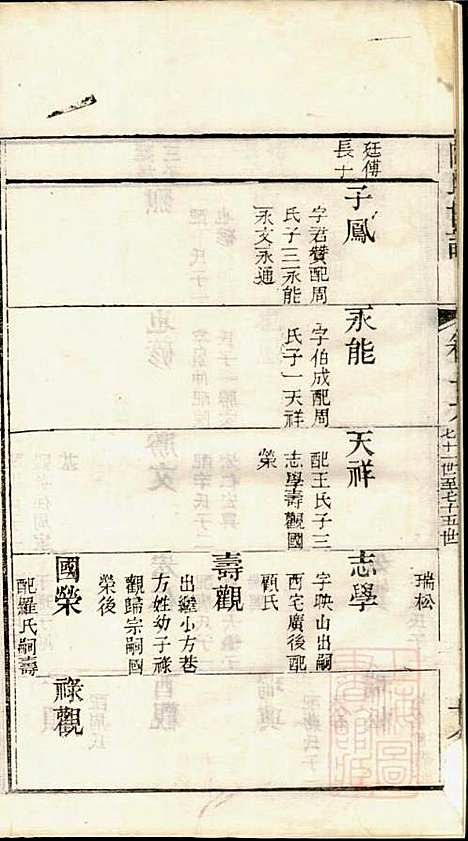 卷十六
七十一世至七十五世
瑞松
廷傅
長子
子鳳
字君贊配周
氏子三永能
永文永通
永能
字伯成配周
氏子一天祥
天祥
配王氏子三
志學壽觀國
榮
志學
字映山出嗣
西宅廣後配
顧氏
壽觀
出繼小方巷
方姓幼子祿
觀歸宗嗣國
榮後
國榮
配羅氏嗣壽
祿觀